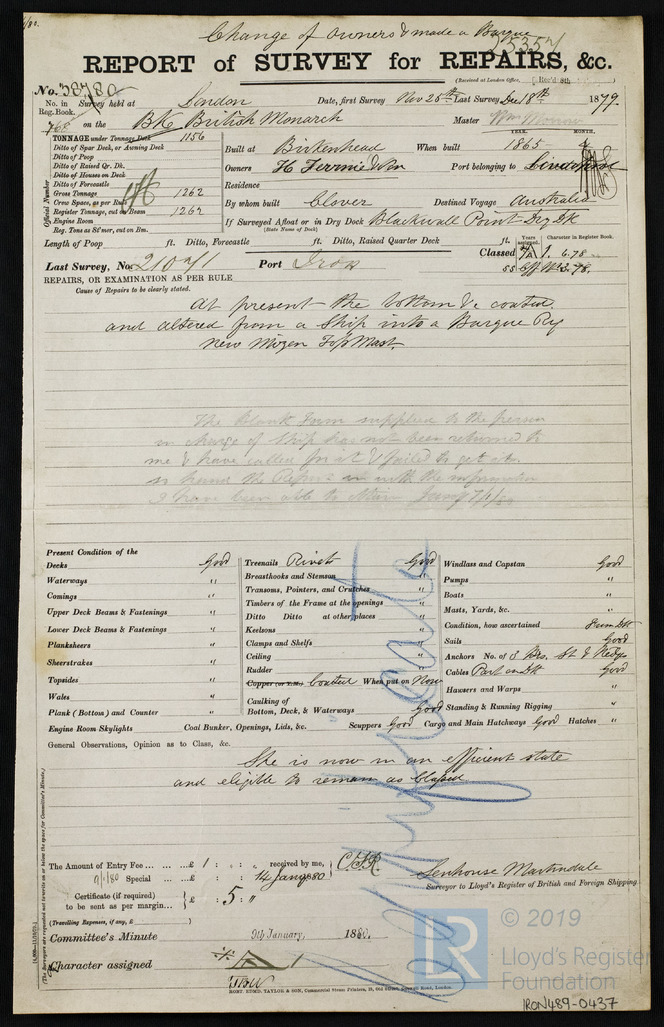 Change of Owners & made a Barque
25357
REPORT of SURVEY for REPAIRS, &c.
(Received at London Office, Rec'd 8th
No. 38780
No. in Reg. Book. Survey held at London Date, first Survey Nov 25th Last Survey Dec 18th 1879.
768 on the Bk British Monarch Master
TONNAGE under Tonnage Deck 1156
Ditto of Spar Deck, or Awning Deck
Ditto of Poop
Ditto of Raised Qr. Dk.
Ditto of Houses on Deck
Ditto of Forecastle
Gross Tonnage 1262
Crew Space, as per Rule
Register Tonnage, cut on Beam 1262
Engine Room
Reg. Tons as St'mer, cut on Bm.
Official Number
YEAR. MONTH.
Built at Birkenhead When built 1865 4
Owners H Fernie & Son Port belonging to
Residence
By whom built Clover Destined Voyage Australia
If Surveyed Afloat or in Dry Dock Blackwall Point Dry Dk
(State Name of Dock)
Length of Poop ft. Ditto, Forecastle ft. Ditto, Raised Quarter Deck ft.
Years assigned. Character in Register Book.
Last Survey, No. 21071 Port Iron Classed A 1. 6.78
REPAIRS, OR EXAMINATION AS PER RULE
Cause of Repairs to be clearly stated.
At present the bottom &c coated
and altered from a Ship into a Barque Rig
New Mizen Top Mast.
The Blank Form supplied to the person
in charge of Ship has not been returned to
me & have called for it & failed to get it.
so hand the Report in with the information
I have been able to obtain
Present Condition of the
Decks Good
Waterways "
Comings "
Upper Deck Beams & Fastenings "
Lower Deck Beams & Fastenings "
Planksheers "
Sheerstrakes "
Topsides "
Wales "
Plank (Bottom) and Counter "
Engine Room Skylights Coal Bunker, Openings, Lids, &c. Scuppers Good Cargo and Main Hatchways Good Hatches "
Treenails Rivets Good
Breasthooks and Stemson "
Transoms, Pointers, and Crutches "
Timbers of the Frame at the openings "
Ditto Ditto at other places "
Keelsons "
Clamps and Shelfs "
Ceiling "
Rudder "
Copper (or Y.M.) Coated When put on Now
Caulking of
Bottom, Deck, & Waterways Good
Windlass and Capstan Good
Pumps "
Boats "
Masts, Yards, &c. "
Condition, how ascertained From Dk
Sails Good
Anchors No. of 3 Brs. St & Kedges
Cables Part on Dk Good
Hawsers and Warps "
Standing & Running Rigging "
General Observations, Opinion as to Class, &c.
She is now in an efficient state
and eligible to remain as Classed
The Amount of Entry Fee £ 1 : : received by me,
9/1/80 Special £ : : 14 Jany 1880
Certificate (if required)
to be sent as per margin £ : 5 : "
(Travelling Expenses, if any, £
Senhouse Martindale
Surveyor to Lloyd's Register of British and Foreign Shipping
Committee's Minute 9th January, 1880.
Character assigned A 1
ROBT. EDMD. TAYLOR & SON, Commercial Steam Printers, 19, Old Street, Goswell Road, London.
(The Surveyors are requested not to write on or below the space for Committee's Minute.)
© 2019
LR
Lloyd's Register
Foundation
IRON489-0437